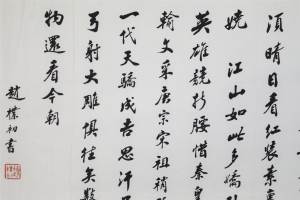 須晴日看紅裝素
嬈 江山如此多嬌引
英雄競折腰惜秦皇
輸文采唐宗宋祖稍
一代天驕成吉思汗
弓射大雕俱往矣數
物還看今朝
趙樸初書